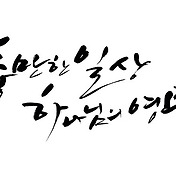 충만한 일상
하나님의